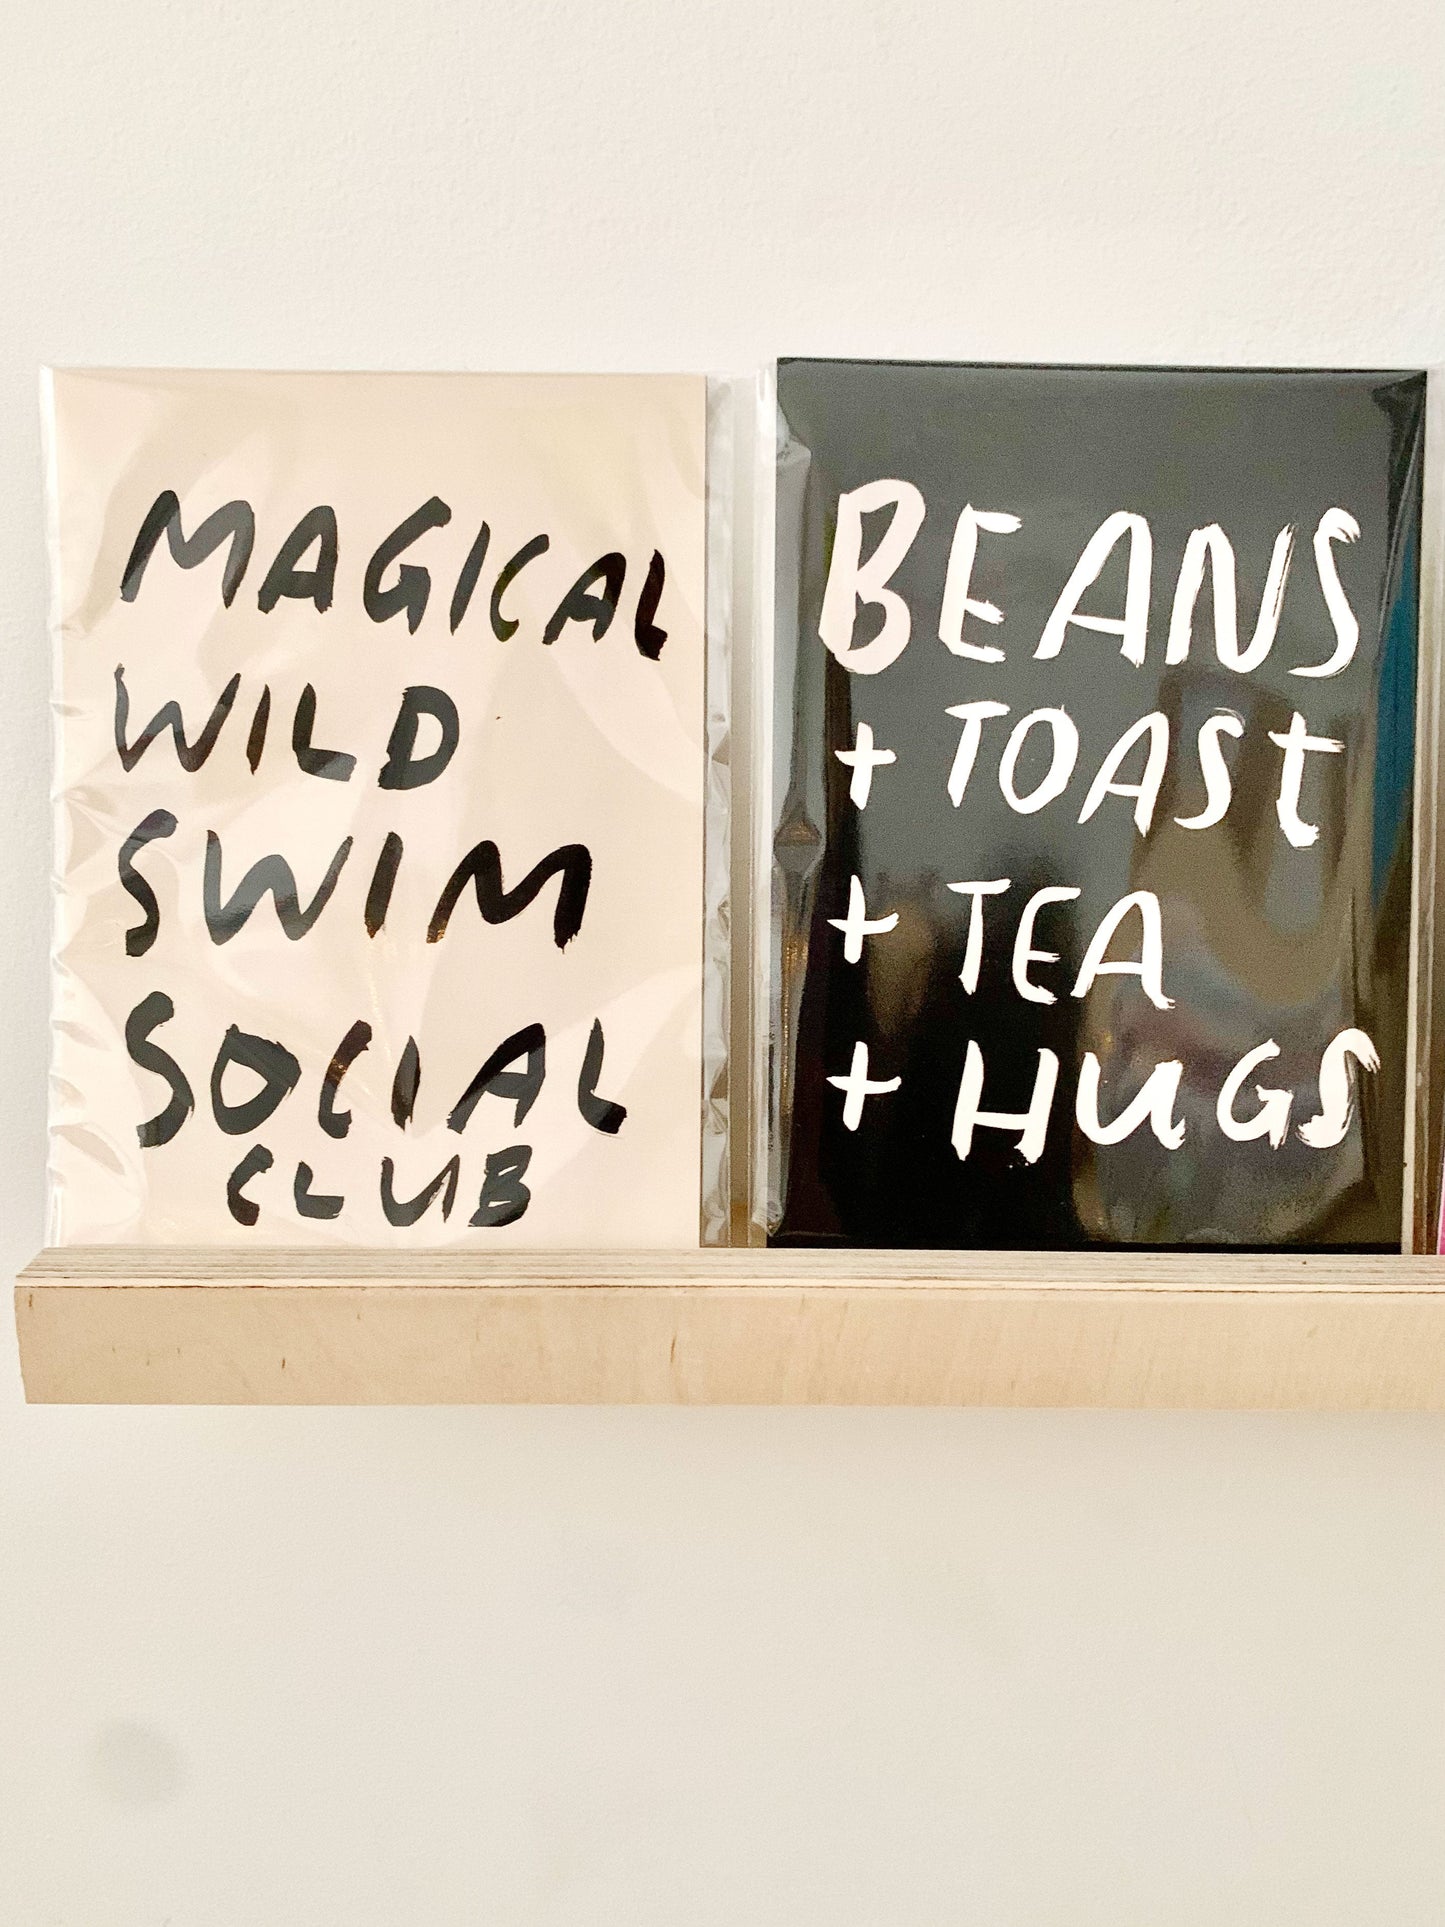 MAGICAL
WILD
SWIM
SOCIAL
CLUB
BEANS
+ TOASt
+ TEA
+ HuGS